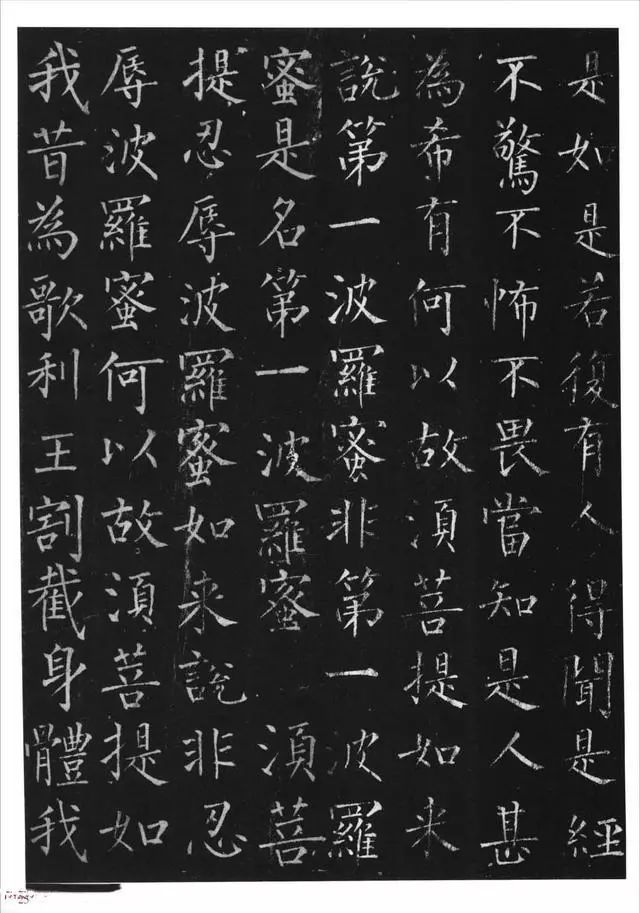 是如是若復有人得聞是經
不驚不怖不畏當知是人甚
為希有何以故湏菩提如来
說第一波羅蜜非第一波羅
蜜是名第一波羅蜜 湏菩
提忍辱波羅蜜如来說非忍
辱波羅蜜何以故湏菩提如
我昔為歌利王割截身體我